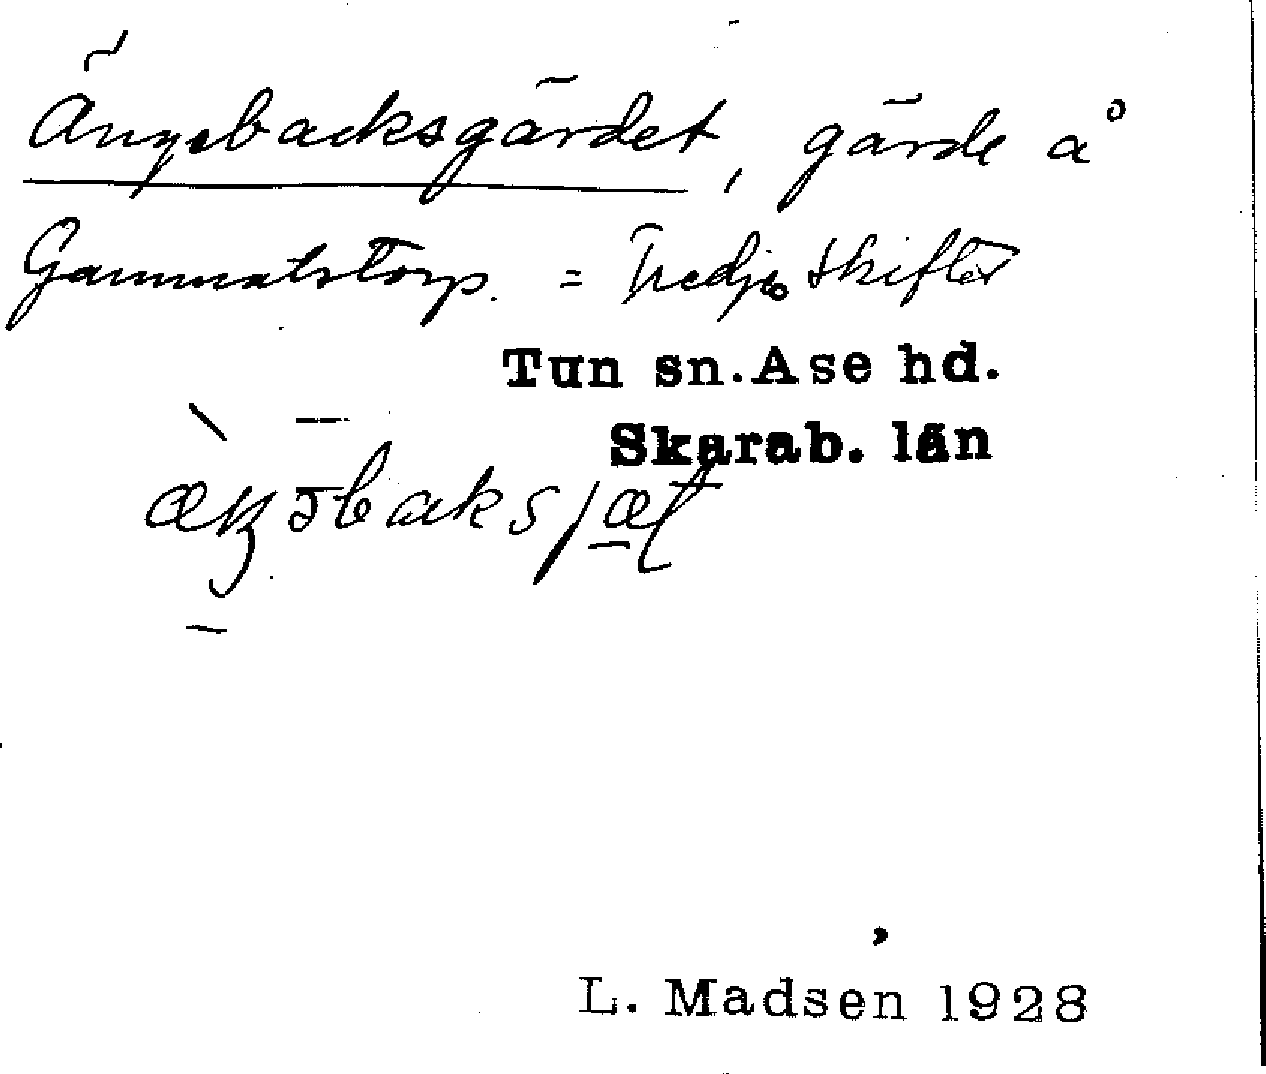 Ängebacksgärdet, gärde å
Gammatstorp. = Tredje skiftet
Tun sn. Åse hd.
Skarab. län
L. Madsen 1928